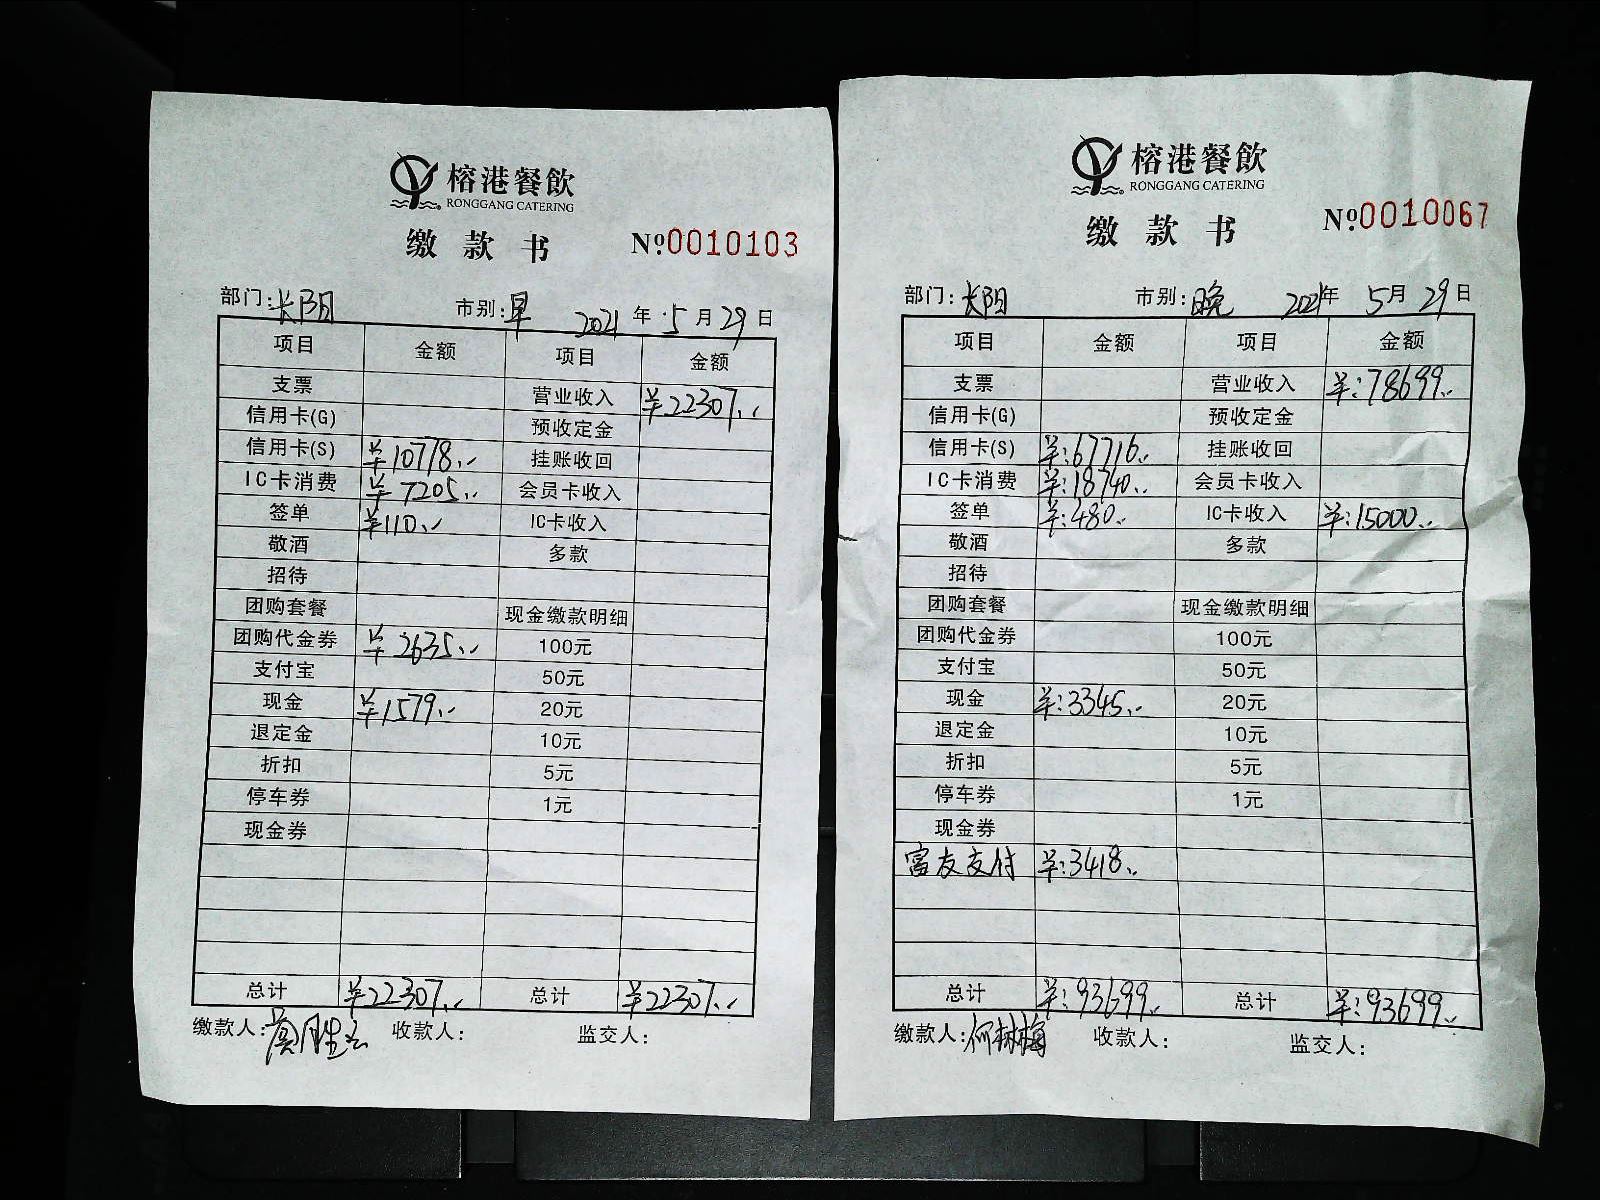 榕港餐飲
RONGGANG CATERING
缴款书 №0010103
部门:长阳 市别:早 2021年5月29日
项目 金额 项目 金额
支票 营业收入 ¥22307..
信用卡(G) 预收定金
信用卡(S) ¥10778.. 挂账收回
IC卡消费 ¥7205.. 会员卡收入
签单 ¥110.. IC卡收入
敬酒 多款
招待
团购套餐 现金缴款明细
团购代金券 ¥2635.. 100元
支付宝 50元
现金 ¥1579.. 20元
退定金 10元
折扣 5元
停车券 1元
现金券
总计 ¥22307.. 总计 ¥22307..
缴款人: 收款人: 监交人:
榕港餐飲
RONGGANG CATERING
缴款书 №0010067
部门:长阳 市别:晚 2021年5月29日
项目 金额 项目 金额
支票 营业收入 ¥:78699..
信用卡(G) 预收定金
信用卡(S) ¥:67716.. 挂账收回
IC卡消费 ¥:18740.. 会员卡收入
签单 ¥:480.. IC卡收入 ¥:15000..
敬酒 多款
招待
团购套餐 现金缴款明细
团购代金券 100元
支付宝 50元
现金 ¥:3345.. 20元
退定金 10元
折扣 5元
停车券 1元
现金券
富友支付 ¥:3418..
总计 ¥:93699.. 总计 ¥:93699..
缴款人:何林梅 收款人: 监交人: